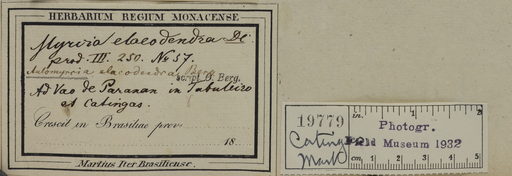 HERBARIUM REGIUM MONACENSE.
Myrcia elaeodendra DC
prod. III. 250. No 57.
Aulomyrcia elaeodendra Berg
script. O. Berg.
Ad Vao de Paranan in Tabuleiro
et Catingas.
Crescit in Brasiliae prov.
18
Martius Iter Brasiliense.
19779
in. 1 2
Photogr.
Field Museum 1932
cm. 1 2 3 4 5